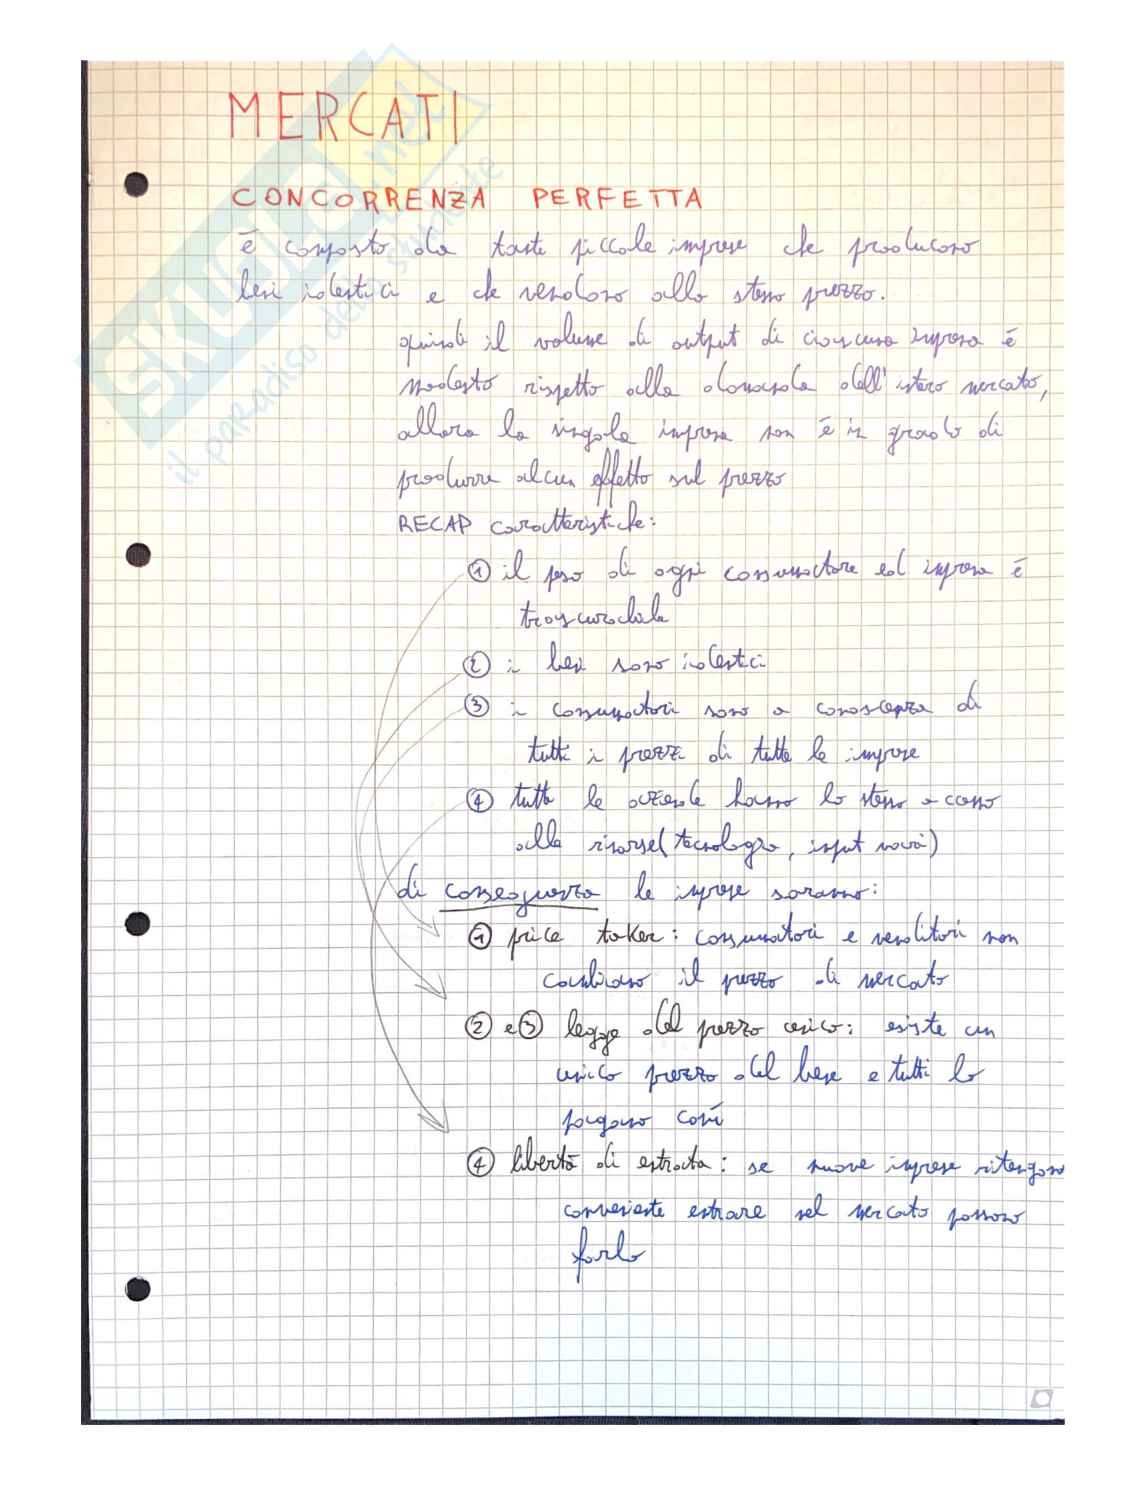 MERCATI
CONCORRENZA PERFETTA
è composto da tante piccole imprese che producono
beni identici e che vendono allo stesso prezzo.
quindi il volume di output di ciascuna impresa è
modesto rispetto alla domanda dell'intero mercato,
allora la singola impresa non è in grado di
produrre alcun effetto sul prezzo
RECAP caratteristiche:
① il peso di ogni consumatore ed impresa è
trascurabile
② i beni sono identici
③ i consumatori sono a conoscenza di
tutti i prezzi di tutte le imprese
④ tutte le aziende hanno lo stesso accesso
alle risorse (tecnologia, input vari)
di conseguenza le imprese saranno:
① price taker: consumatori e venditori non
cambiano il prezzo di mercato
② e ③ legge del prezzo unico: esiste un
unico prezzo del bene e tutti lo
pagano così
④ libertà di entrata: se nuove imprese ritengono
conveniente entrare nel mercato possono
farlo
SKUOLA.net
il paradiso dello studente